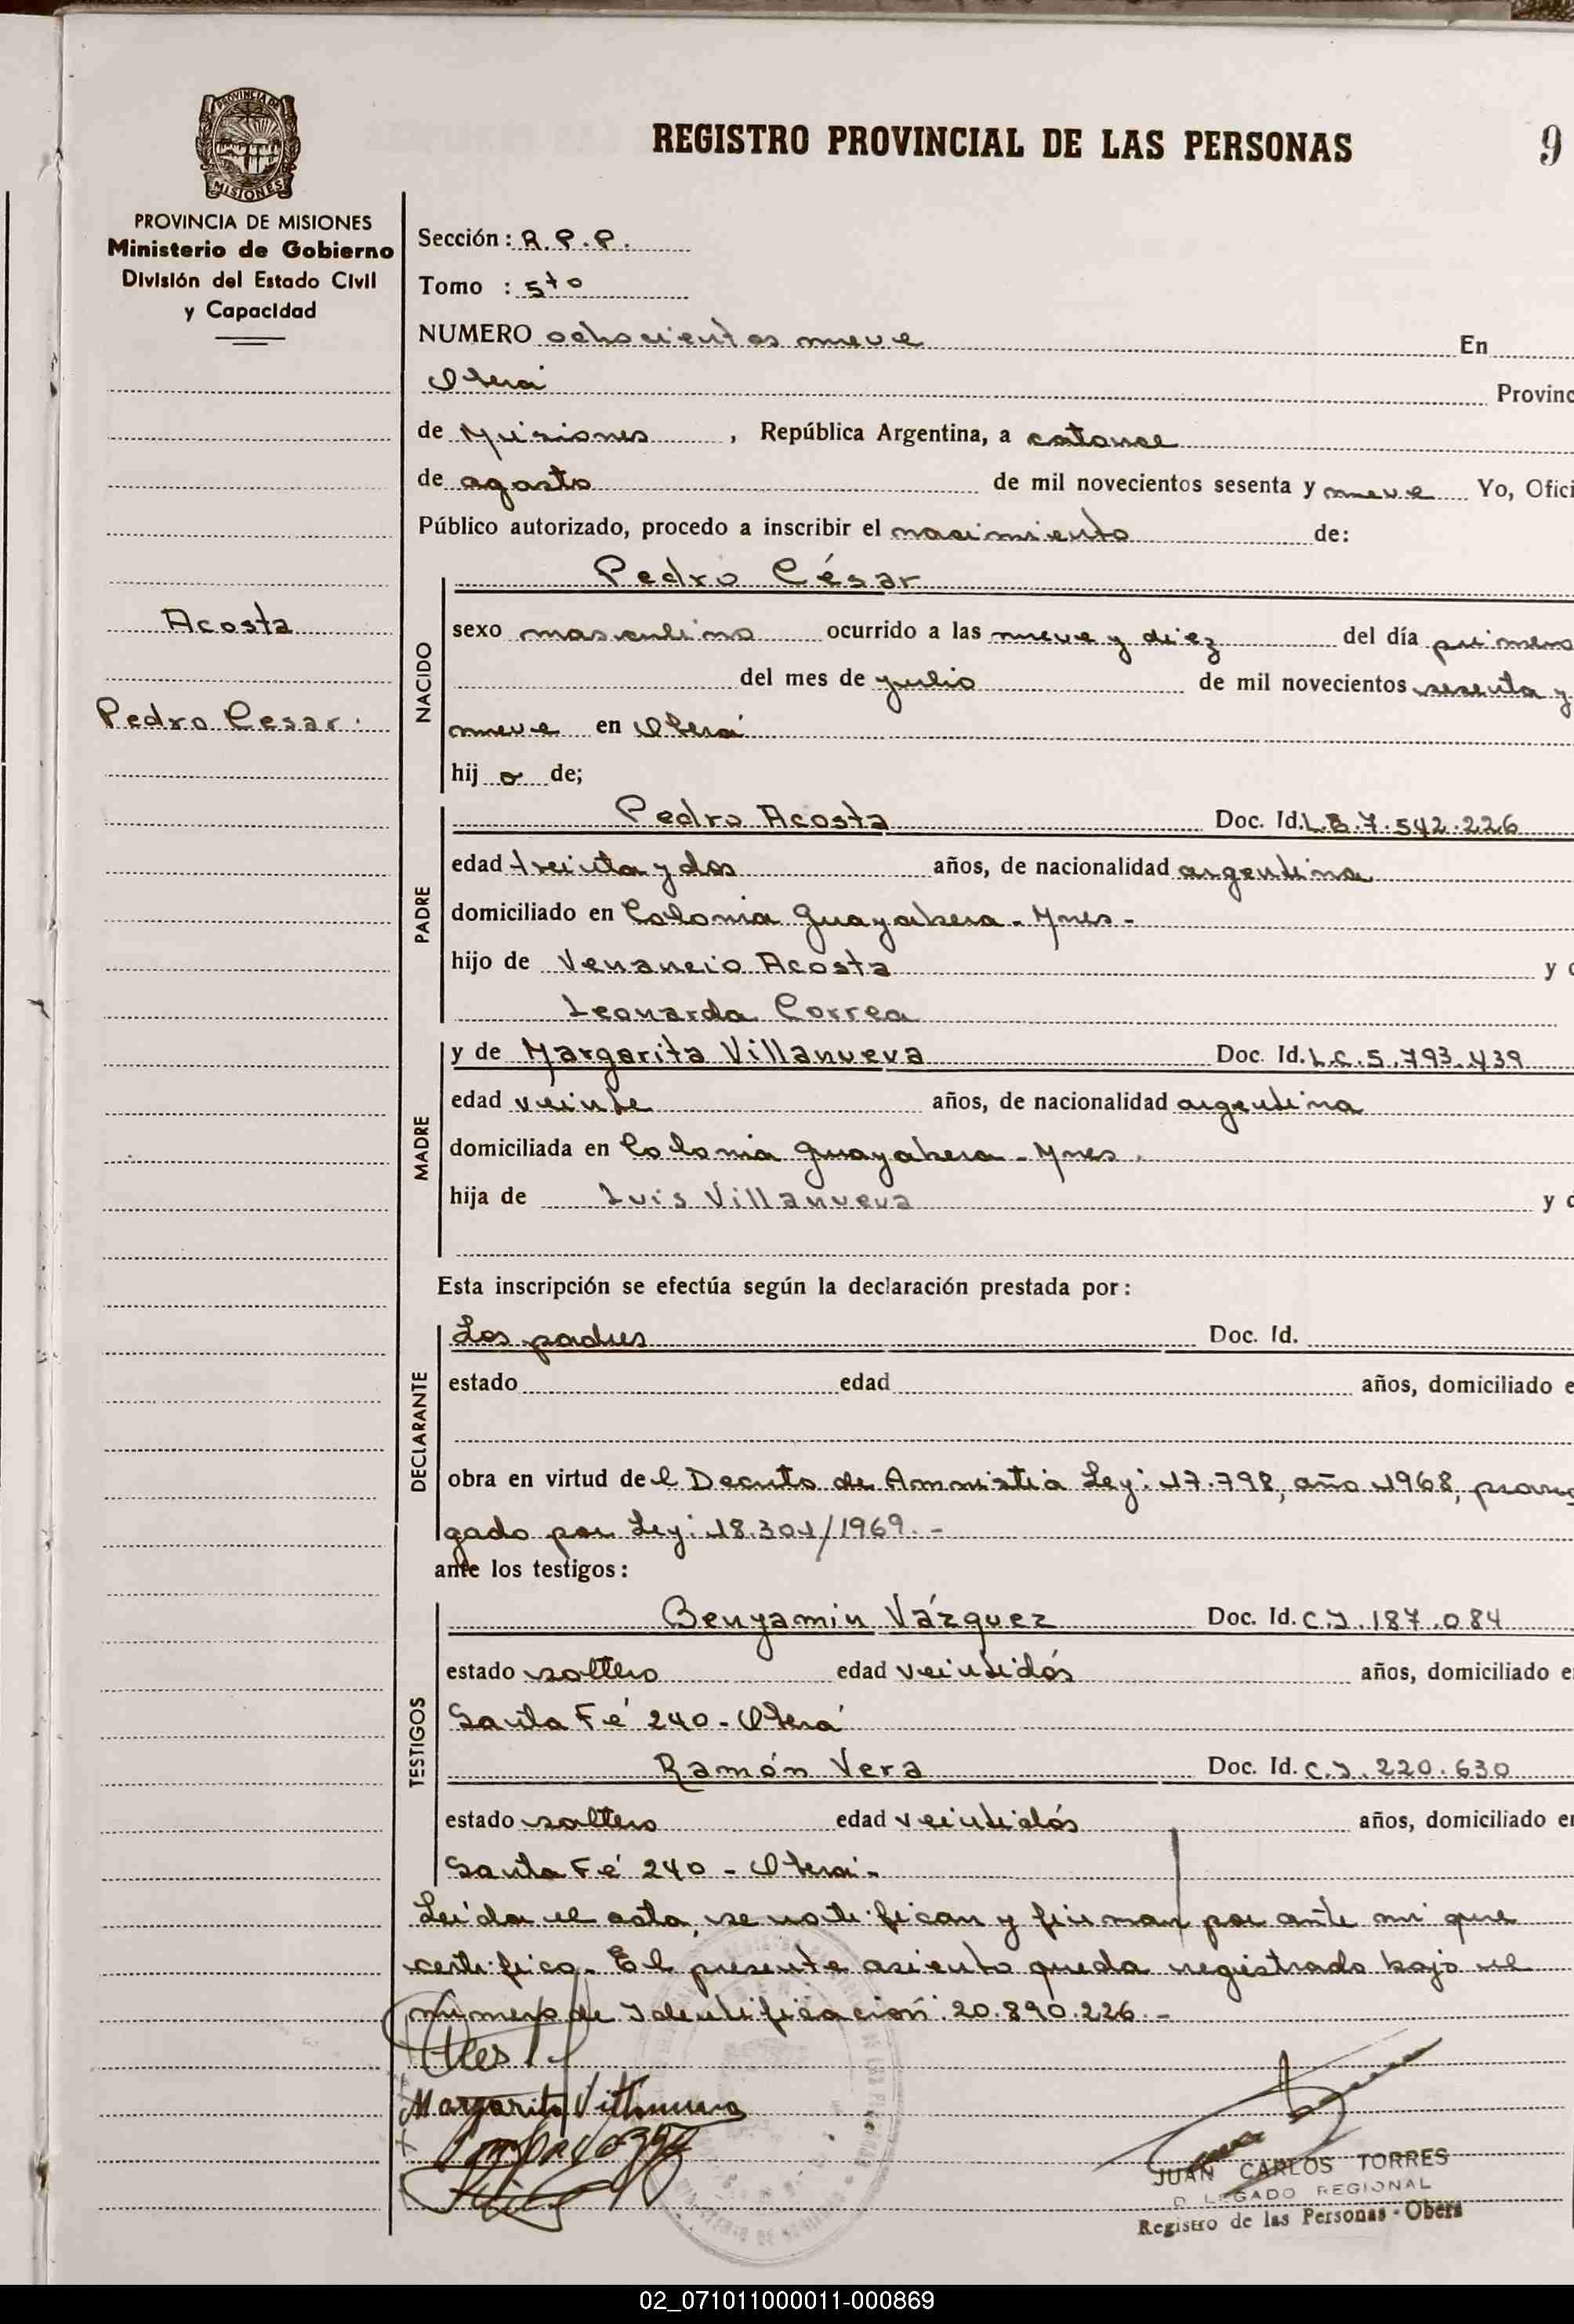 PROVINCIA DE
MISIONES
REGISTRO PROVINCIAL DE LAS PERSONAS
9
PROVINCIA DE MISIONES
Ministerio de Gobierno
División del Estado Civil
y Capacidad
Sección: R.P.P.
Tomo : 5to
NUMERO ochocientos nueve En
Oberá Provinc
de Misiones , República Argentina, a catorce
de agosto de mil novecientos sesenta y nueve Yo, Ofici
Público autorizado, procedo a inscribir el nacimiento de:
Pedro César
Acosta
Pedro Cesar.
NACIDO
sexo masculino ocurrido a las nueve y diez del día primero
del mes de julio de mil novecientos sesenta y
nueve en Oberá
hij o de;
PADRE
Pedro Acosta Doc. Id. L.B.7.542.226
edad treinta y dos años, de nacionalidad argentina
domiciliado en Colonia Guayabera - Mnes -
hijo de Venancio Acosta y d
Leonarda Correa
MADRE
y de Margarita Villanueva Doc. Id. L.C.5.793.439
edad veinte años, de nacionalidad argentina
domiciliada en Colonia Guayabera - Mnes.
hija de Luis Villanueva y d
Esta inscripción se efectúa según la declaración prestada por:
DECLARANTE
Los padres Doc. Id.
estado edad años, domiciliado e
obra en virtud de l Decreto de Amnistia Ley: 17.798, año 1968, prorro
gado por Ley: 18.301/1969. -
ante los testigos:
TESTIGOS
Benyamin Vázquez Doc. Id. C.I. 187.084
estado soltero edad veintidós años, domiciliado e
Santa Fé 240 - Oberá
Ramón Vera Doc. Id. C.I. 220.630
estado soltero edad veintidós años, domiciliado en
Santa Fé 240 - Oberá -
Leída el acta, se notifican y firman por ante mi que
certifico. El presente asiento queda registrado bajo el
número de Identificación: 20.890.226. -
Margarita Villanueva
JUAN CARLOS TORRES
D LEGADO REGIONAL
Registro de las Personas - Oberá
02_071011000011-000869